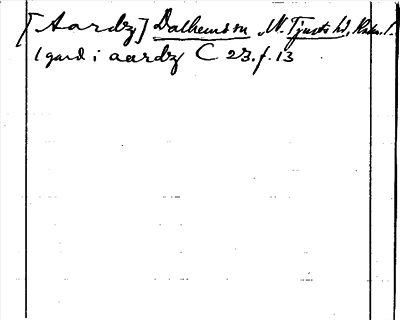 [Aardz] Dalhems sn, N. Tjusts hd, Kalm. l.
1 gard i aardz C 23.f.13